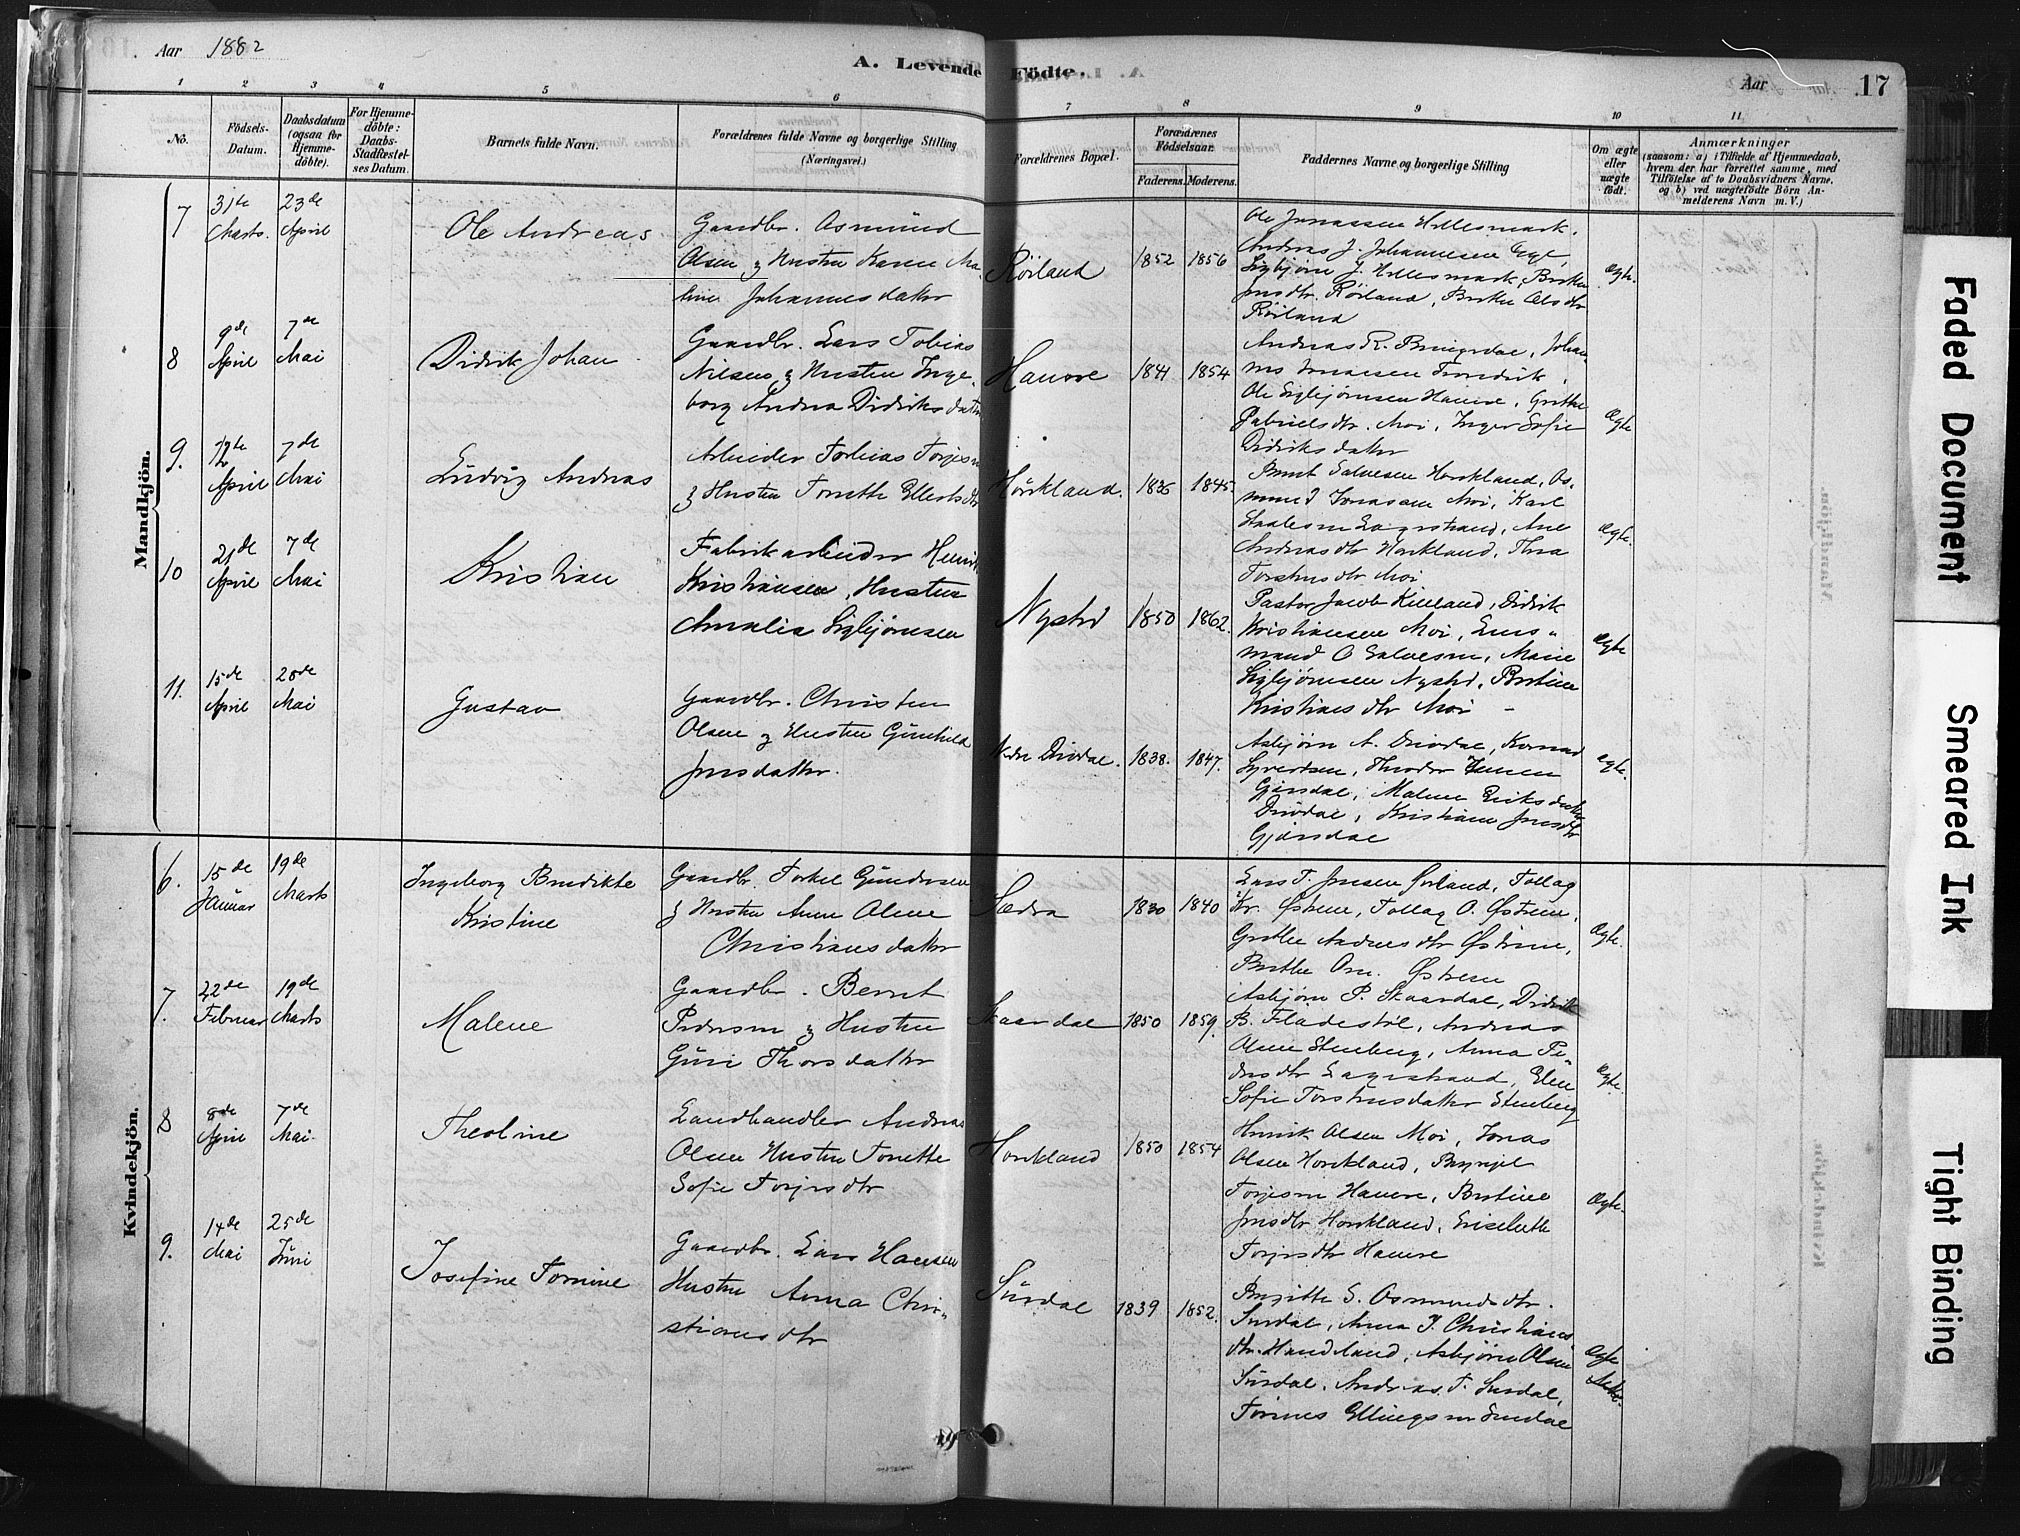 Aar 1882
A. Levende Födte.
Aar
17
1 2 3 4 5 6 7 8 9 10 11
No.
Födsels-
Datum.
Daabsdatum
(ogsaa for
Hjemme-
döbte).
For Hjemme-
döbte:
Daabs-
Stadfæstel-
ses Datum.
Barnets fulde Navn.
Forældrenes fulde Navne og borgerlige Stilling
(Næringsvei.)
Forældrenes Bopæl.
Forældrenes
Födselsaar.
Faderens.
Moderens.
Faddernes Navne og borgerlige Stilling
Om ægte
eller
uægte
födt.
Anmærkninger
(saasom: a) i Tilfælde af Hjemmedaab,
hvem der har forrettet samme, med
Tilföielse af to Daabsvidners Navne,
og b) ved uægtefödte Börn An-
melderens Navn m. V.)
Mandkjön.
7
31te
Marts.
23de
April
Ole Andreas
Gaardbr. Osmünd
Olsen & Hustru Karen Ma-
line Johannesdatter
Röiland
1852
1856
Ole Jonassen Hellesmark,
Andreas J. Johannesen Ege,
Sigbjörn J. Hellesmark, Berthe
Jensdtr. Röiland, Berthe Olsdtr
Röiland
ægte.
8
9de
April
7de
Mai
Didrik Johan
Gaardbr. Lars Tobias
Nilsen & Hustru Inge-
borg Andrea Didriksdatter
Hauvre
1841
1854
Andreas R. Bringsdal, Johan-
nes
Ole Sigbjörnsen Hauvre, Grethe
Gabrielsdtr. Moi, Inger Sofie
Didriksdatter
Ægte
9.
12te
April
7de
Mai
Lüdvig Andreas
Arbeider Tobias Torjesen
& Hustru Tonette Ellertsdtr
Hörkland.
1836
1845.
Bernt Salvesen Horkland, Os-
mund Jonassen Moi, Karl
Staalesen Lagestrand, Ane
Andreasdtr Horkland, Thea
Torstensdtr Moi
Ægte.
10
21de
April
7de
Mai
Kristian
Fabrikarbeider Henrik
Kristiansen, Hustru
Amalia Sigbjörnsen
Nysted
1850
1862.
Pastor Jacob Kielland, Didrik
Kristiansen Moi, Lens-
mand O Salvesen, Marie
Sigbjörnsen Nysted, Bertine
Kristiansdtr Moi
Ægte
11.
15de
April
28de
Mai
Gustav
Gaardbr. Christen
Olsen & Hustru Günhild
Jensdatter.
Nedre Drivdal.
1838.
1847.
Asbjörn A. Drivdal, Konrad
Syvertsen, Theodor Jensen
Gjærsdal, Malene Eriksdatter
Drivdal, Kristiane Jensdtr
Gjærsdal
ægte.
Kvindekjön.
6.
15de
Januar
19de
Marts
Ingeborg Bendikte
Kristine
Gaardbr. Torkel Gündersen
& Hustru Anne Olene
Christiansdatter
Sædra
1830
1840
Lars T. Jensen Örland, Tollag
Kr. Östrem, Tollag O. Östrem,
Grethe Andreasdtr Östrem,
Berthe Östrem
Ægte.
7.
22de
Februar
19de
Marts
Malene
Gaardbr. Bernt
Pedersen & Hustru
Güri Thorsdatter
Skaardal
1850
1859.
Asbjörn P. Skaardal, Didrik
B. Fladestöl, Andreas
Olsen Stenberg, Anna Pe-
dersdtr Lagestrand, Elen
Sofie Torstensdatter Stenberg
Ægte
8
8de
April
7de
Mai.
Theoline
Landhandler Andreas
Olsen Hustru Tonette
Sofie Torjesdtr
Horkland
1850
1854
Henrik Olsen Moi, Jonas
Olsen Horkland, Bryngel
Torjesen Hauvre, Bertine
Jensdtr Horkland, Elisabeth
Torjesdtr Hauvre
Ægte.
9.
14de
Mai
25de
Jüni
Josefine Tomine
Gaardbr. Lars Hansen
Hustru Anna Chri-
stiansdtr
Sürdal
1839
1852.
Birgitte S. Osmundsdtr.
Surdal, Anna J. Christians-
dtr. Handeland, Asbjörn Olsen
Sürdal, Andreas T. Surdal,
Tönnes Ellingsen Surdal
Ægte
Faded Document
Smeared Ink
Tight Binding